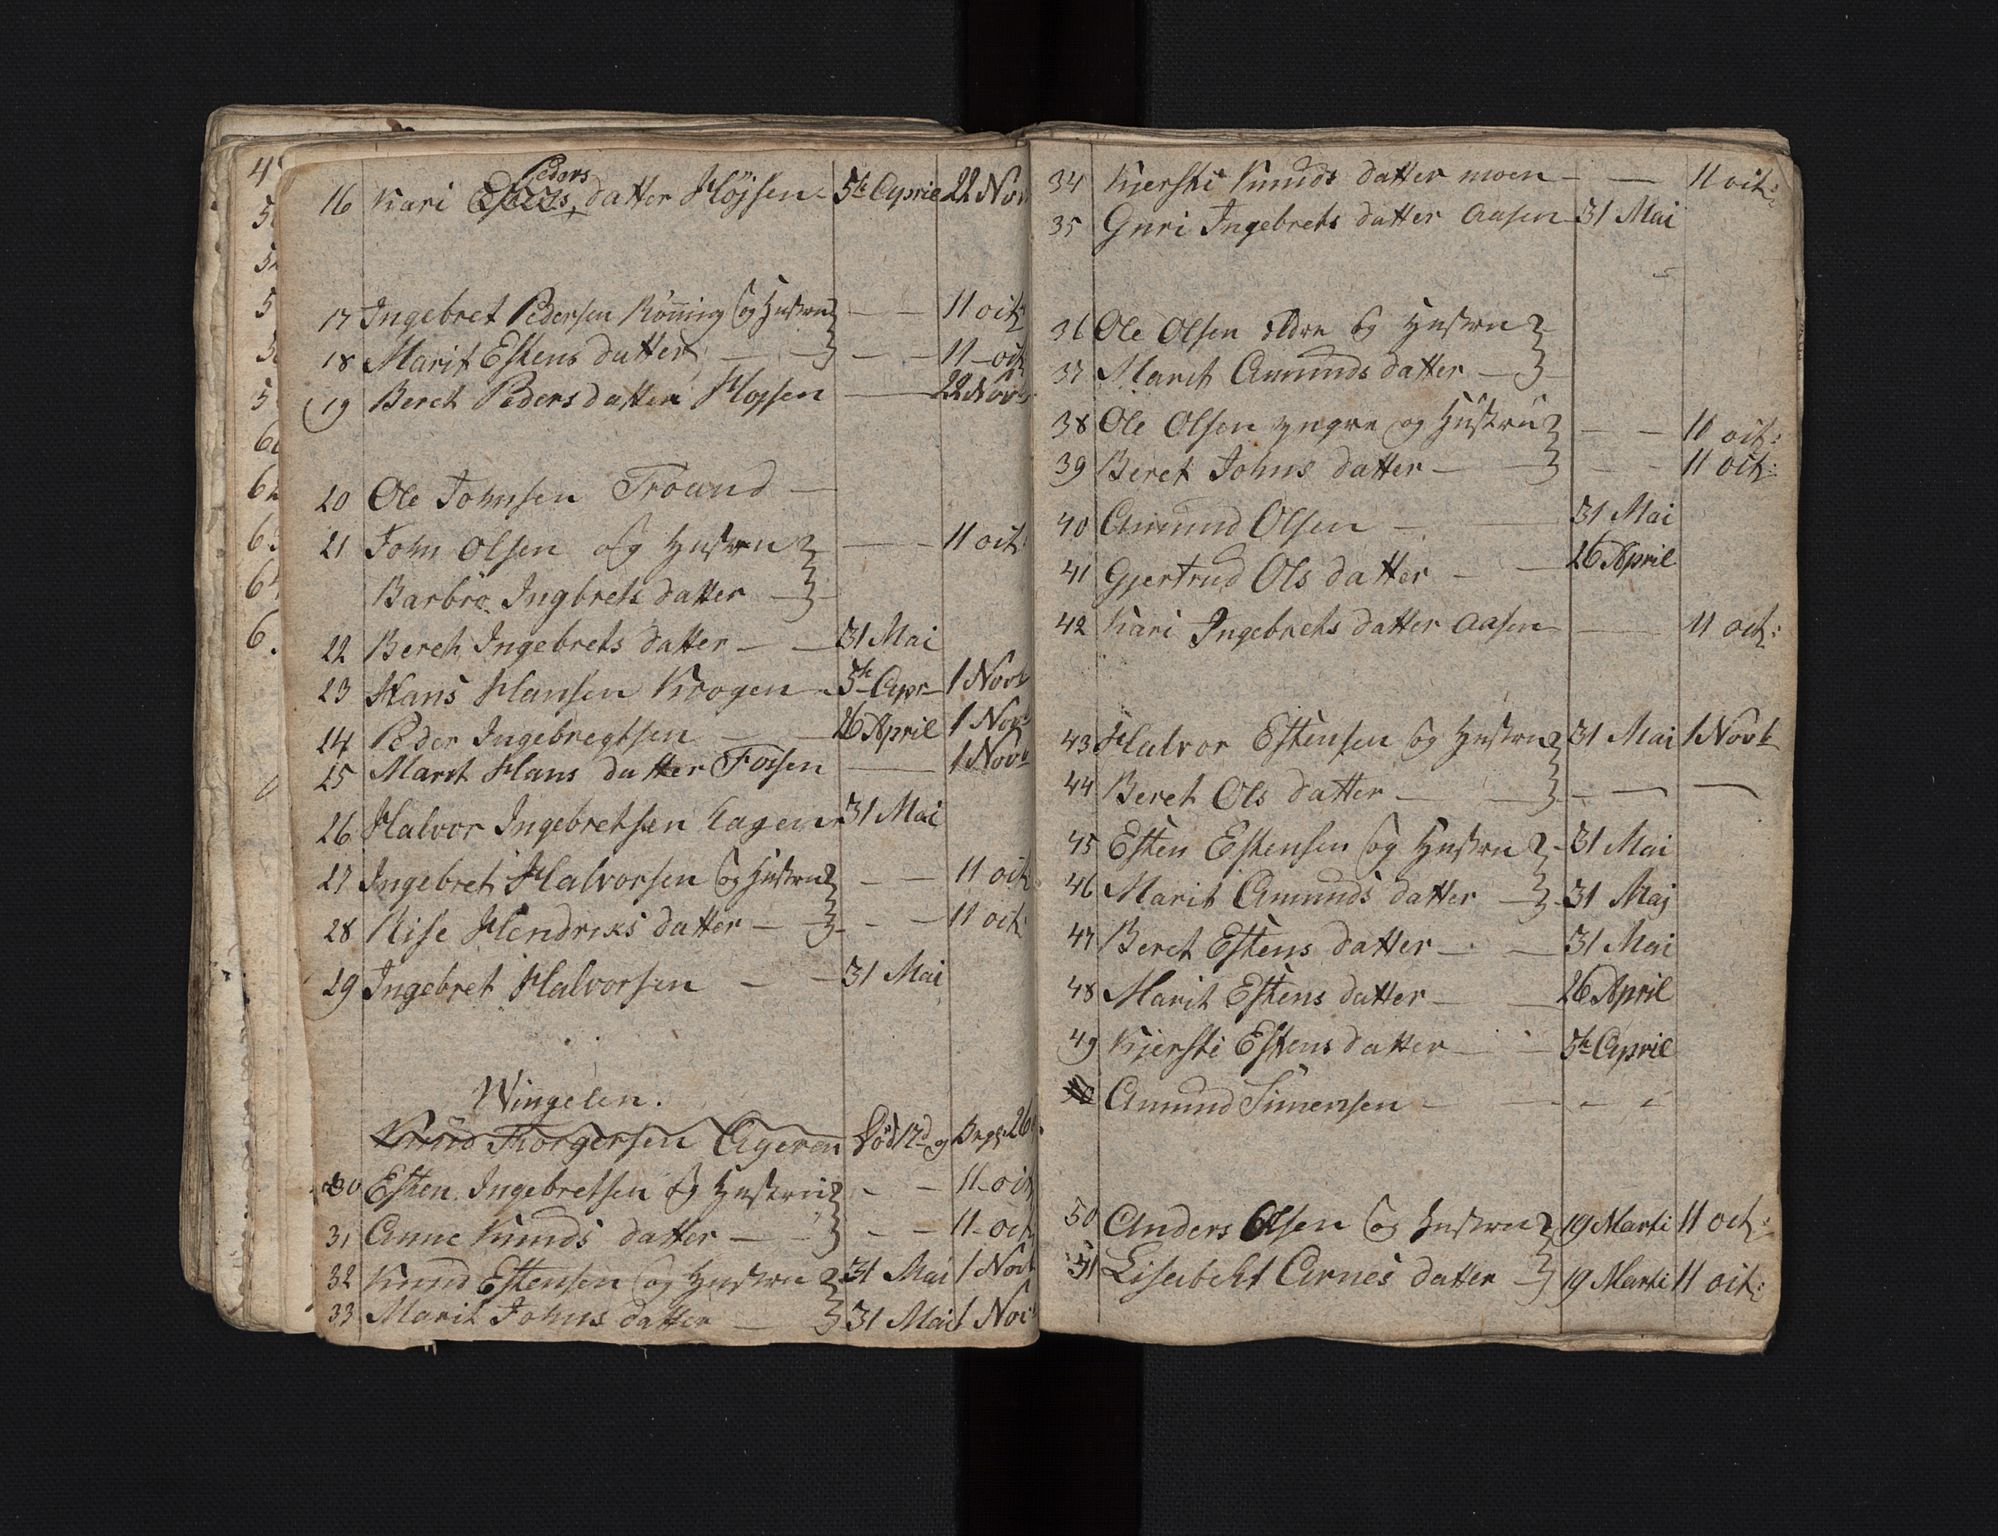 16 Kari Peders datter HøJsen - 5te April 22 Nov
17 Ingebret Pedersen Rönnig og Hustru - - 11 oct:
18 Marit Estens datter - - - - 11 - oct
19 Beret Peders datter Hojsen - 22 Novb
20 Ole Johnsen Troand -
21 John Olsen og Hustru - - 11 oct:
Barbro Ingbrets datter -
22 Beret Ingebrets datter - - 31 Mai
23 Hans Hansen Krogen - 5te Apr - 1 Novb
24 Peder Ingebregtsen - - 26 April 1 Novb
25 Marit Hans datter Fossen - 1 Novb
26 Halvor Ingebretsen Eagen 31 Mai
27 Ingebret Halvorsen og Hustru - - 11 oct
28 Rise Hendriks datter - - - - 11 oct:
29 Ingebret Halvorsen - - 31 Mai
Wingelen.
Knud Thorgersen Ageren Død 12d og Begr: 26
30 Esten Ingebretsen og Hustru - - 11 - oct
31 Anne Knuds datter - - - - 11 - oct
32 Knud Estensen og Hustru 31 Mai 1 Novb
33 Marit Johns datter - 31 Mai 1 Nov
34 Kjersti Knuds datter moen - - 11 oct:
35 Guri Ingebrets datter Aasen - 31 Mai
36 Ole Olsen eldre og Hustru
37 Marit Amunds datter - -
38 Ole Olsen yngre og Hustru - - 11 oct:
39 Beret Johns datter - - - - 11 oct:
40 Amund Olsen - - 31 Mai
41 Gjertrud Ols datter - - 26 April
42 Kari Ingebrets datter Aasen - - 11 oct:
43 Halvor Estensen og Hustru 31 Mai 1 Novb
44 Beret Ols datter - - - - -
45 Esten Estensen og Hustru - 31 Mai
46 Marit Amunds datter - - 31 Maj
47 Beret Estens datter - - 31 Mai
48 Marit Estens datter - - 26 April
49 Kjersti Estens datter - - 5te April
Amund Simensen - - - - -
50 Anders Olsen og Hustru 19 Marti 11 oct:
51 Lisebeht Arnes datter - 19 Marti 11 oct: